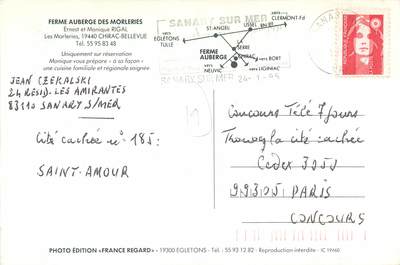 FERME AUBERGE DES MORLERIES
Ernest et Monique RIGAL
Les Morleries, 19440 CHIRAC-BELLEVUE
Tél. 55 95 83 48
Uniquement sur réservation
Monique vous prépare « à sa façon »
une cuisine familiale et régionale soignée
SANARY SUR MER
vers
CLERMONT-Fd
ST-ANGEL
USSEL
vers
EGLETONS
TULLE
SERRE
FERME
AUBERGE
CHIRAC
vers BORT
vers
NEUVIC
vers
LIGINIAC
SANARY SUR MER 24-1-95
JEAN CZEKALSKI
24 RÉSID. LES AMIRANTES
83110 SANARY S/MER
Cité cachée n° 185:
SAINT-AMOUR
Concours Télé 7 Jours
la cité cachée
Cedex 3259
99305 PARIS
CONCOURS
PHOTO ÉDITION «FRANCE REGARD» - 19300 EGLETONS - Tél. 55 93 12 82 - Reproduction interdite - IC 19460